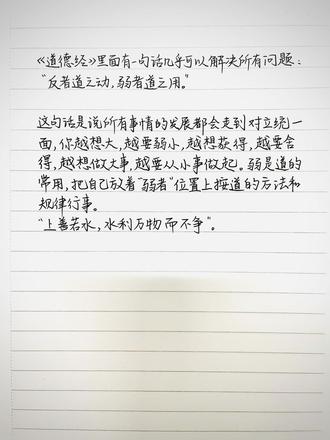 《道德经》里面有一句话几乎可以解决所有问题：
“反者道之动，弱者道之用。”
这句话是说所有事情的发展都会走到对立统一
面，你越想大，越要弱小，越想获得，越要舍
得，越想做大事，越要从小事做起。弱是道的
常用，把自己放着“弱者”位置上按道的方法和
规律行事。
“上善若水，水利万物而不争”。